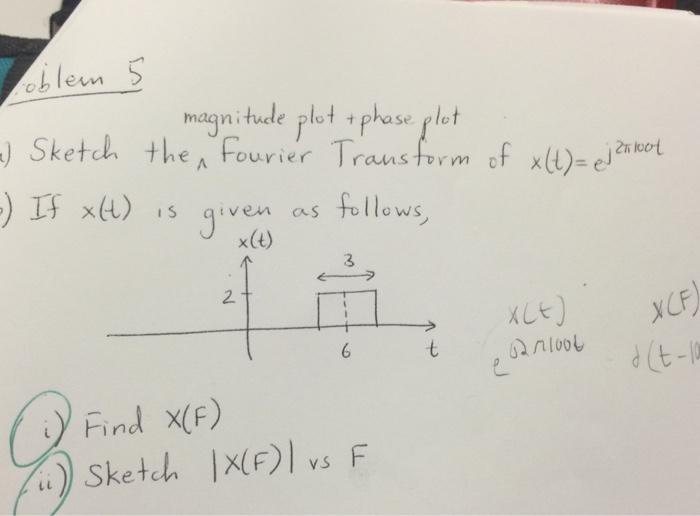 oblem 5
magnitude plot + phase plot
) Sketch the ^ Fourier Transform of x(t) = e^j2π100t
) If x(t) is given as follows,
x(t)
3
2
6
t
x(t) X(F)
e^j2π100t δ(t-10
i) Find X(F)
ii) Sketch |X(F)| vs F